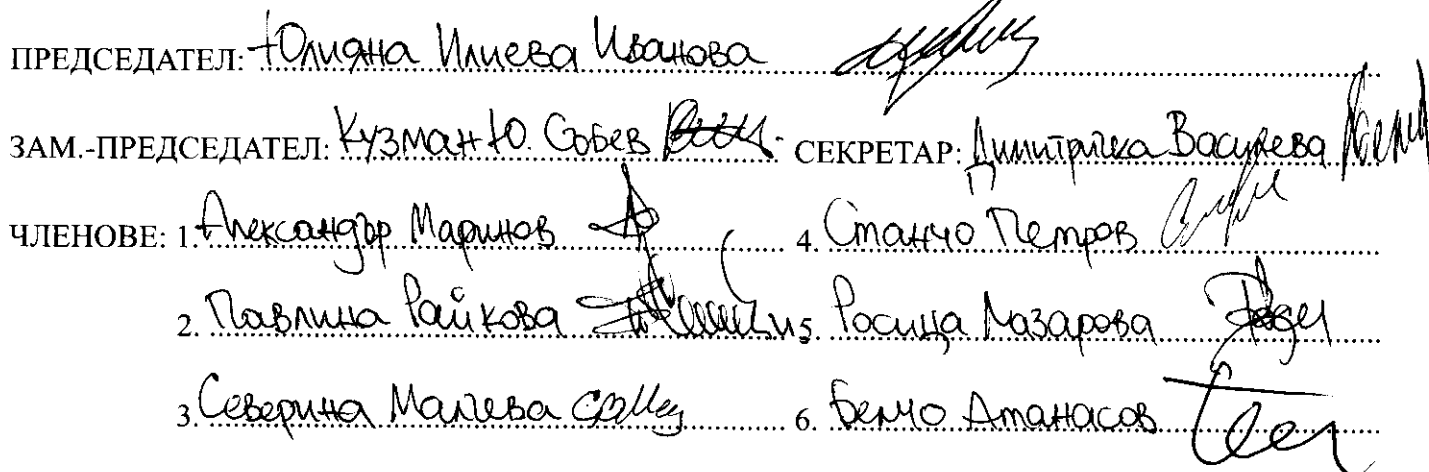 ПРЕДСЕДАТЕЛ: Юлияна Илиева Иванова
ЗАМ.-ПРЕДСЕДАТЕЛ: Кузман Ю. Събев СЕКРЕТАР: Димитричка Василева
ЧЛЕНОВЕ: 1. Александър Маринов 4. Станчо Петров
2. Павлина Райкова 5. Росица Лазарова
3. Северина Малчева 6. Белчо Атанасов